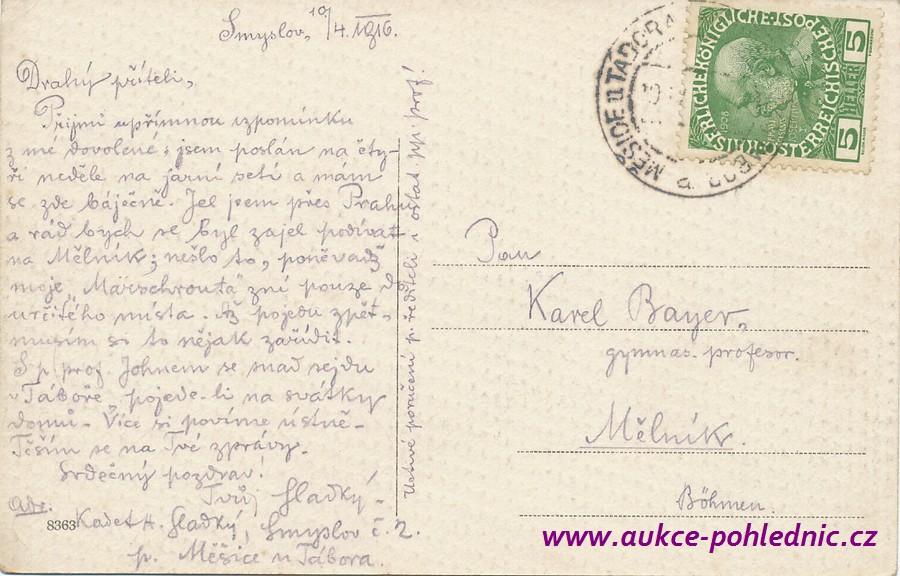 Smyslov, 10/4. 1916.
Drahý příteli,
Přijmi upřímnou vzpomínku
z mé dovolené; jsem poslán na čty-
ři neděle na jarní setí a mám
se zde báječně. Jel jsem přes Prahu
a rád bych se byl zajel podívat
na Mělník; nešlo to, poněvadž
moje "Marschrouta" zní pouze do
určitého místa. Až pojedu zpět
musím si to nějak zařídit.
S p. prof. Johnem se snad sejdu
v Táboře pojede-li na svátky
domů. Více si povíme ústně.
Těším se na Tvé zprávy.
Srdečný pozdrav!
Tvůj Hladký.
Adr.
Kadet H. Hladký, Smyslov č. 2.
p. Měšice u Tábora.
8363
Uctivé poručení p. řediteli i ostat. pp. prof.!
MĚŠICE U TÁBORA
KAISERLICHE KÖNIGLICHE POST
ÖSTERREICHISCHE
5 HELLER 5
Pan
Karel Bayer,
gymnas. profesor.
Mělník.
Böhmen.
www.aukce-pohlednic.cz